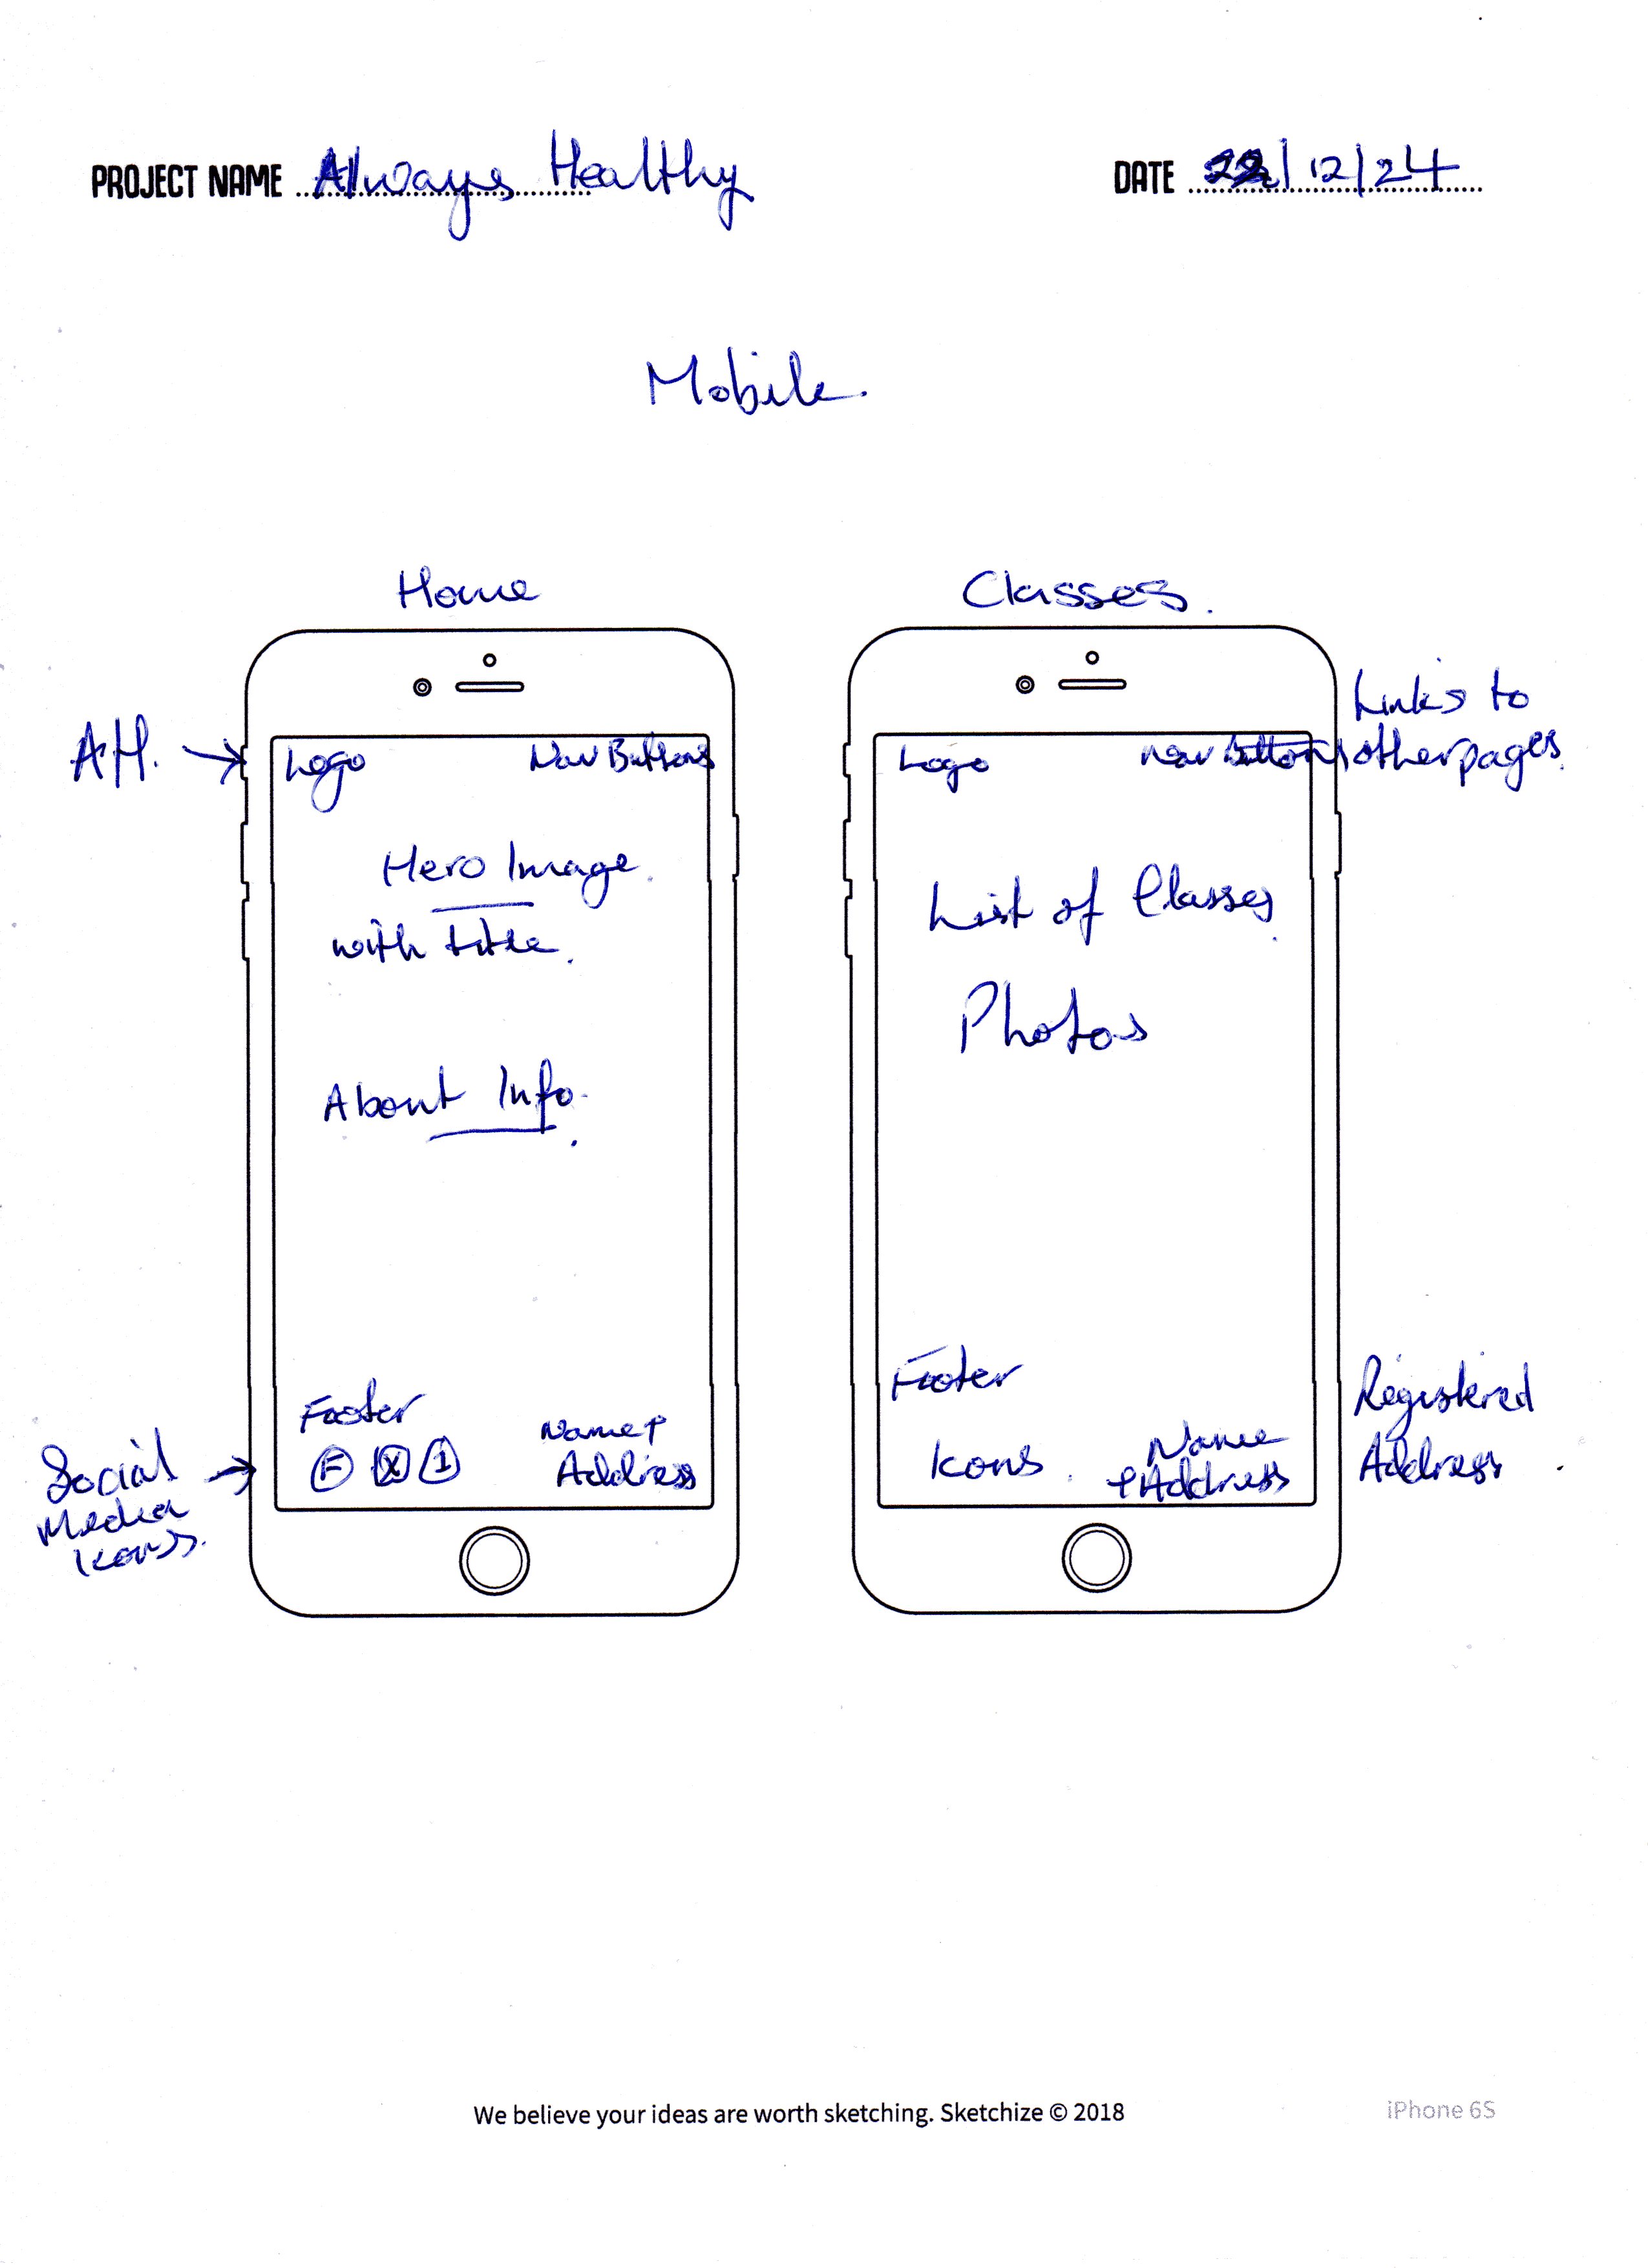 PROJECT NAME Always Healthy
DATE 22/12/24
Mobile.
Home
Classes.
A.H.
Logo
Nav Buttons
Hero Image.
with title.
About Info.
Footer
F X I
Name +
Address
Social
Media
Icons.
Logo
Nav buttons
Links to
other pages.
List of Classes
Photos
Footer
Icons.
Name
+ Address
Registered
Address
We believe your ideas are worth sketching. Sketchize © 2018
iPhone 6S